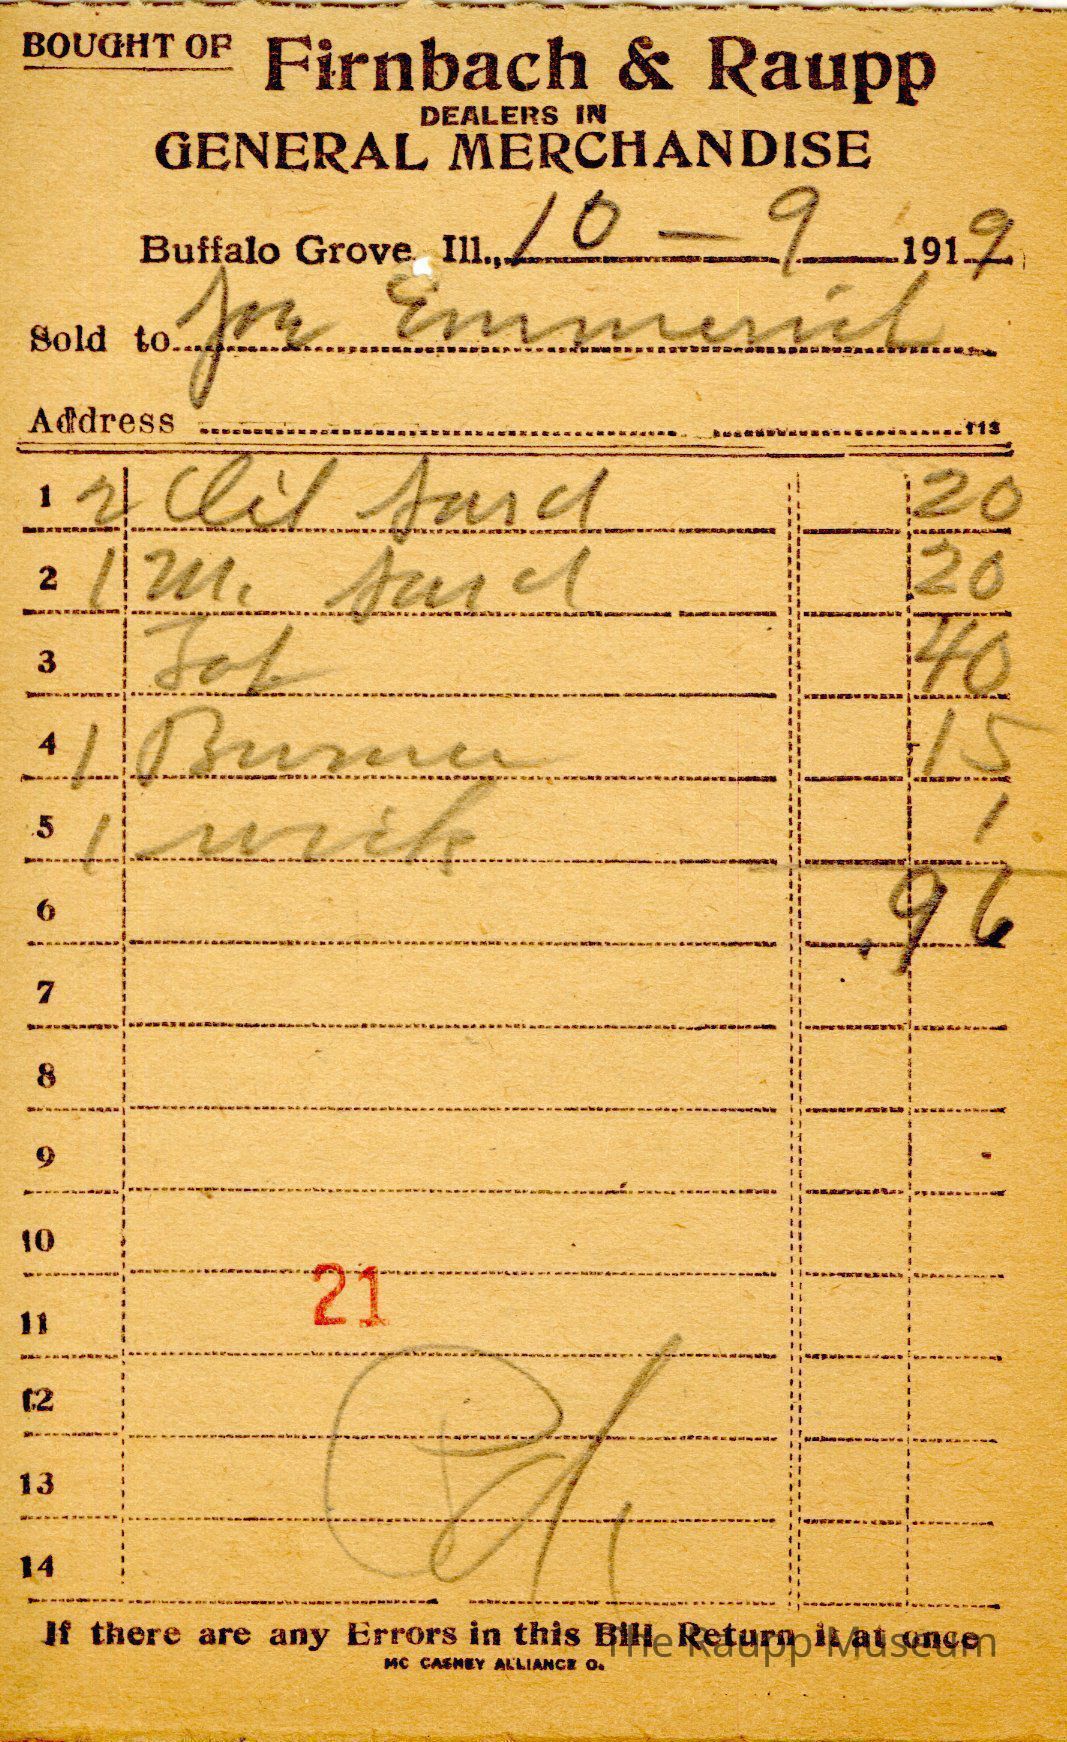 BOUGHT OF Firnbach & Raupp
DEALERS IN
GENERAL MERCHANDISE
Buffalo Grove, Ill., 10 — 9 1919
Sold to Joe Emmerich
Address 113
1 2 Oil Sard 20
2 1 M. Sard 20
3 Tob 40
4 1 Burner 15
5 1 wick 1
6 .96
7
8
9
10
21
11
12
13
14
Pd
If there are any Errors in this Bill Return it at once
The Raupp Museum
MC CASKEY ALLIANCE O.